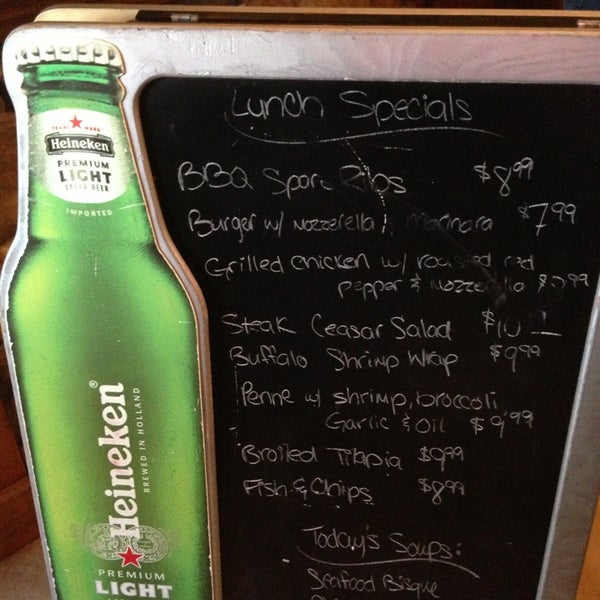 TRADE MARK
Heineken
PREMIUM
LIGHT
LAGER BEER
IMPORTED
Heineken®
BREWED IN HOLLAND
PREMIUM
LIGHT
Lunch Specials
BBQ Spare Ribs $8.99
Burger w/ Mozzerella & Marinara $7.99
Grilled chicken w/ roasted red
pepper & Mozzerella
Steak Ceasar Salad $10
Buffalo Shrimp Wrap $9.99
Penne w/ shrimp, broccoli
Garlic & Oil $9.99
Broiled Tilapia $9.99
Fish & Chips $8.99
Today's Soups:
Seafood Bisque